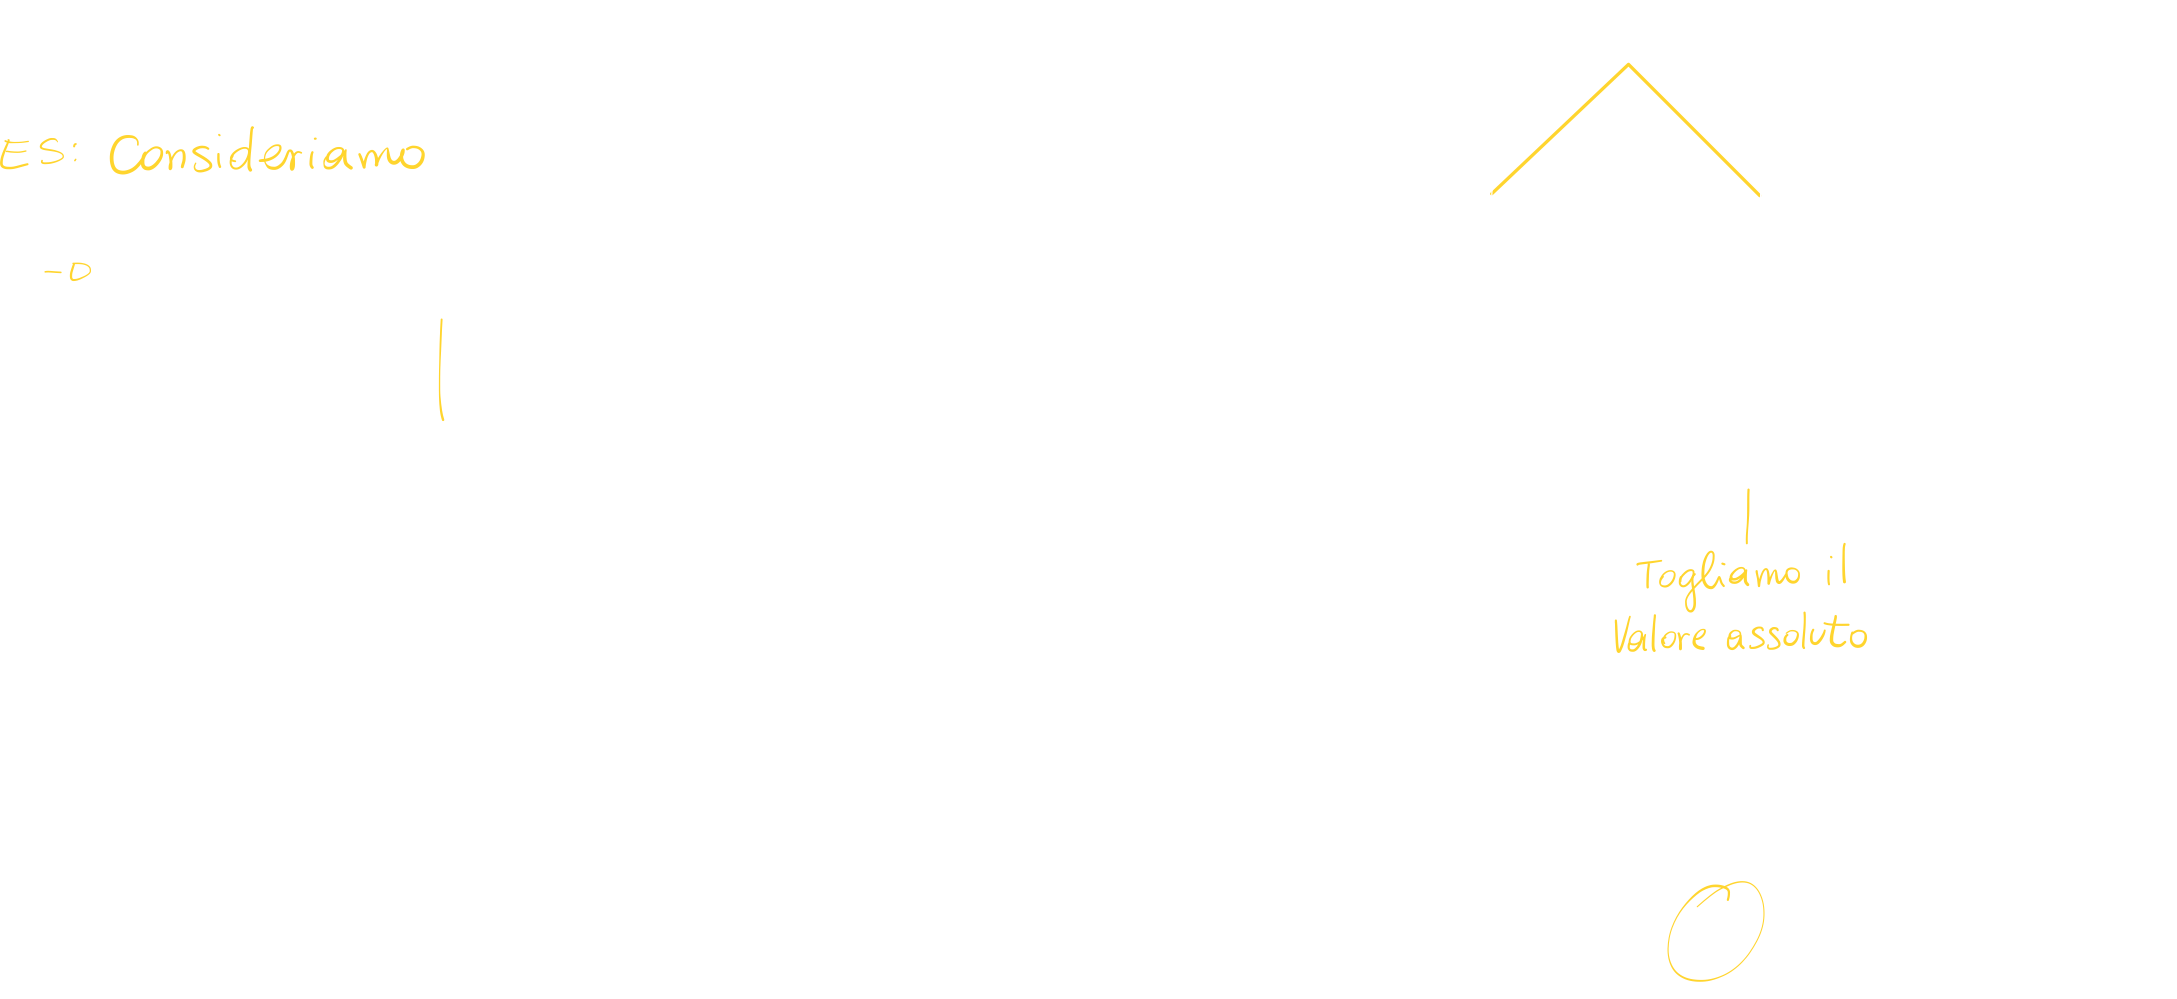 ES: Consideriamo
Togliamo il
Valore assoluto